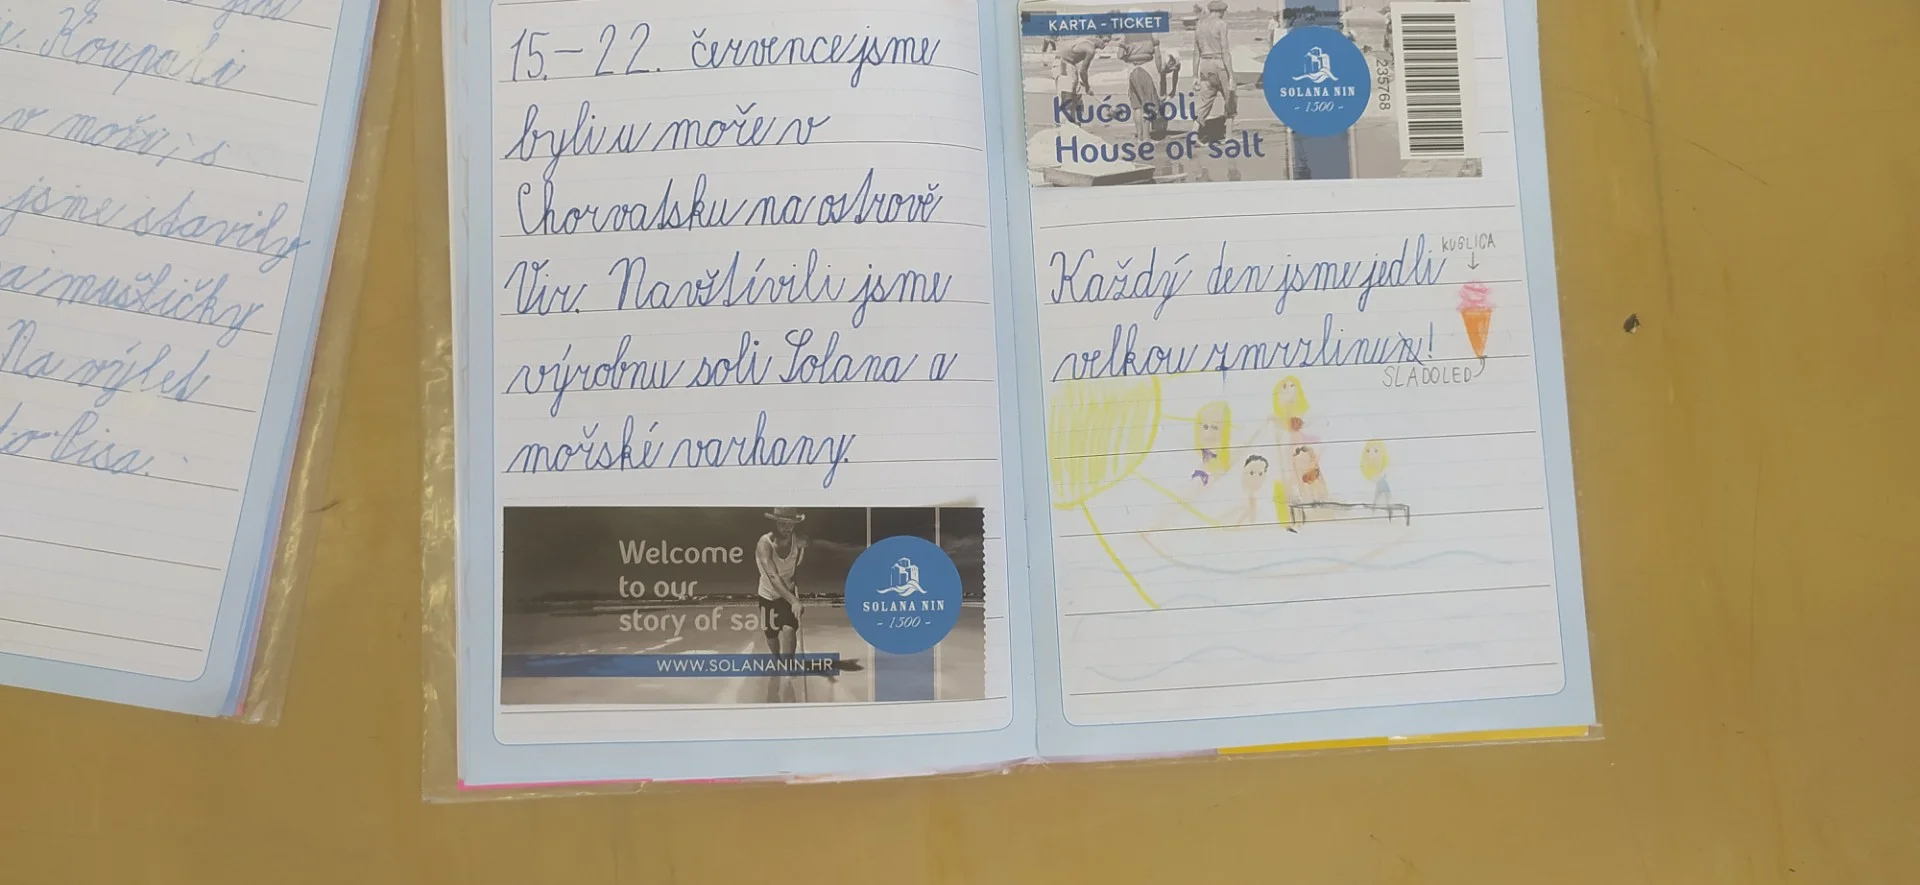 . Koupali
v moři, s
jsme stavily
a mušličky
Na výlet
Pisa.
15.-22. července jsme
byli u moře v
Chorvatsku na ostrově
Vir. Navštívili jsme
výrobnu soli Solana a
mořské varhany.
Welcome
to our
story of salt
WWW.SOLANANIN.HR
SOLANA NIN
- 1500 -
KARTA - TICKET
Kuća soli
House of salt
SOLANA NIN
- 1500 -
235768
Každý den jsme jedli
KUGLICA
velkou zmrzlinu!
SLADOLED